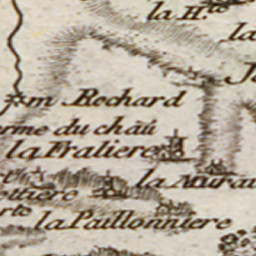 la H.te
la
m Rechard
erme du châu
la Fraliere
la Murau
ottiere
rte
la Paillonniere